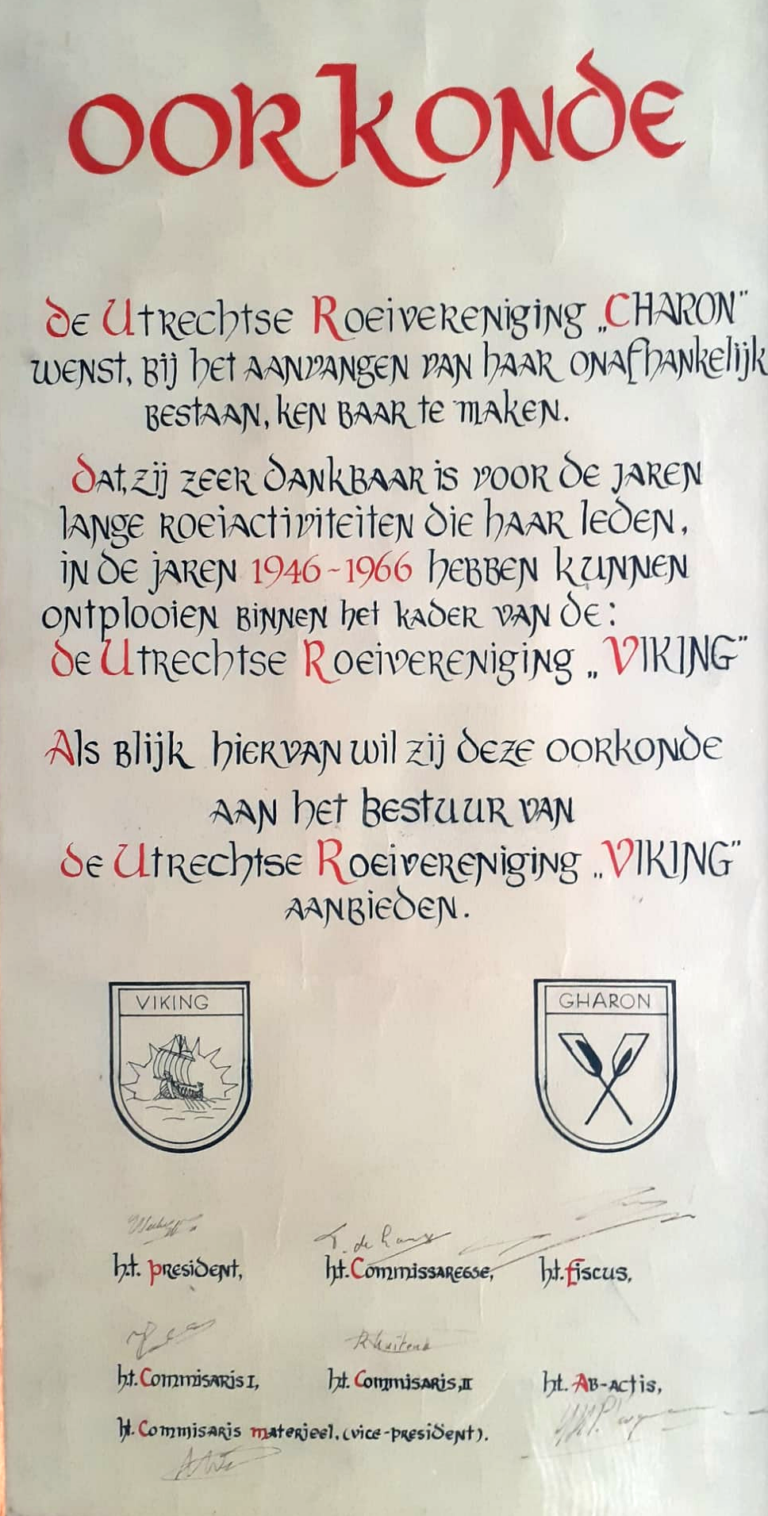 OORKONDE
de Utrechtse Roeivereniging „CHARON”
wenst, bij het aanvangen van haar onafhankelijk
bestaan, ken baar te maken.
dat, zij zeer dankbaar is voor de jaren
lange roeiactiviteiten die haar leden,
in de jaren 1946-1966 hebben kunnen
ontplooien binnen het kader van de:
de Utrechtse Roeivereniging „VIKING”
Als blijk hiervan wil zij deze oorkonde
aan het bestuur van
de Utrechtse Roeivereniging „VIKING”
aanbieden.
VIKING
GHARON
T. de
h.t. president,
h.t. Commissaresse,
h.t. fiscus,
h.t. Commisaris I,
h.t. Commisaris, II
h.t. Ab-actis,
h.t. Commisaris materieel. (vice-president).